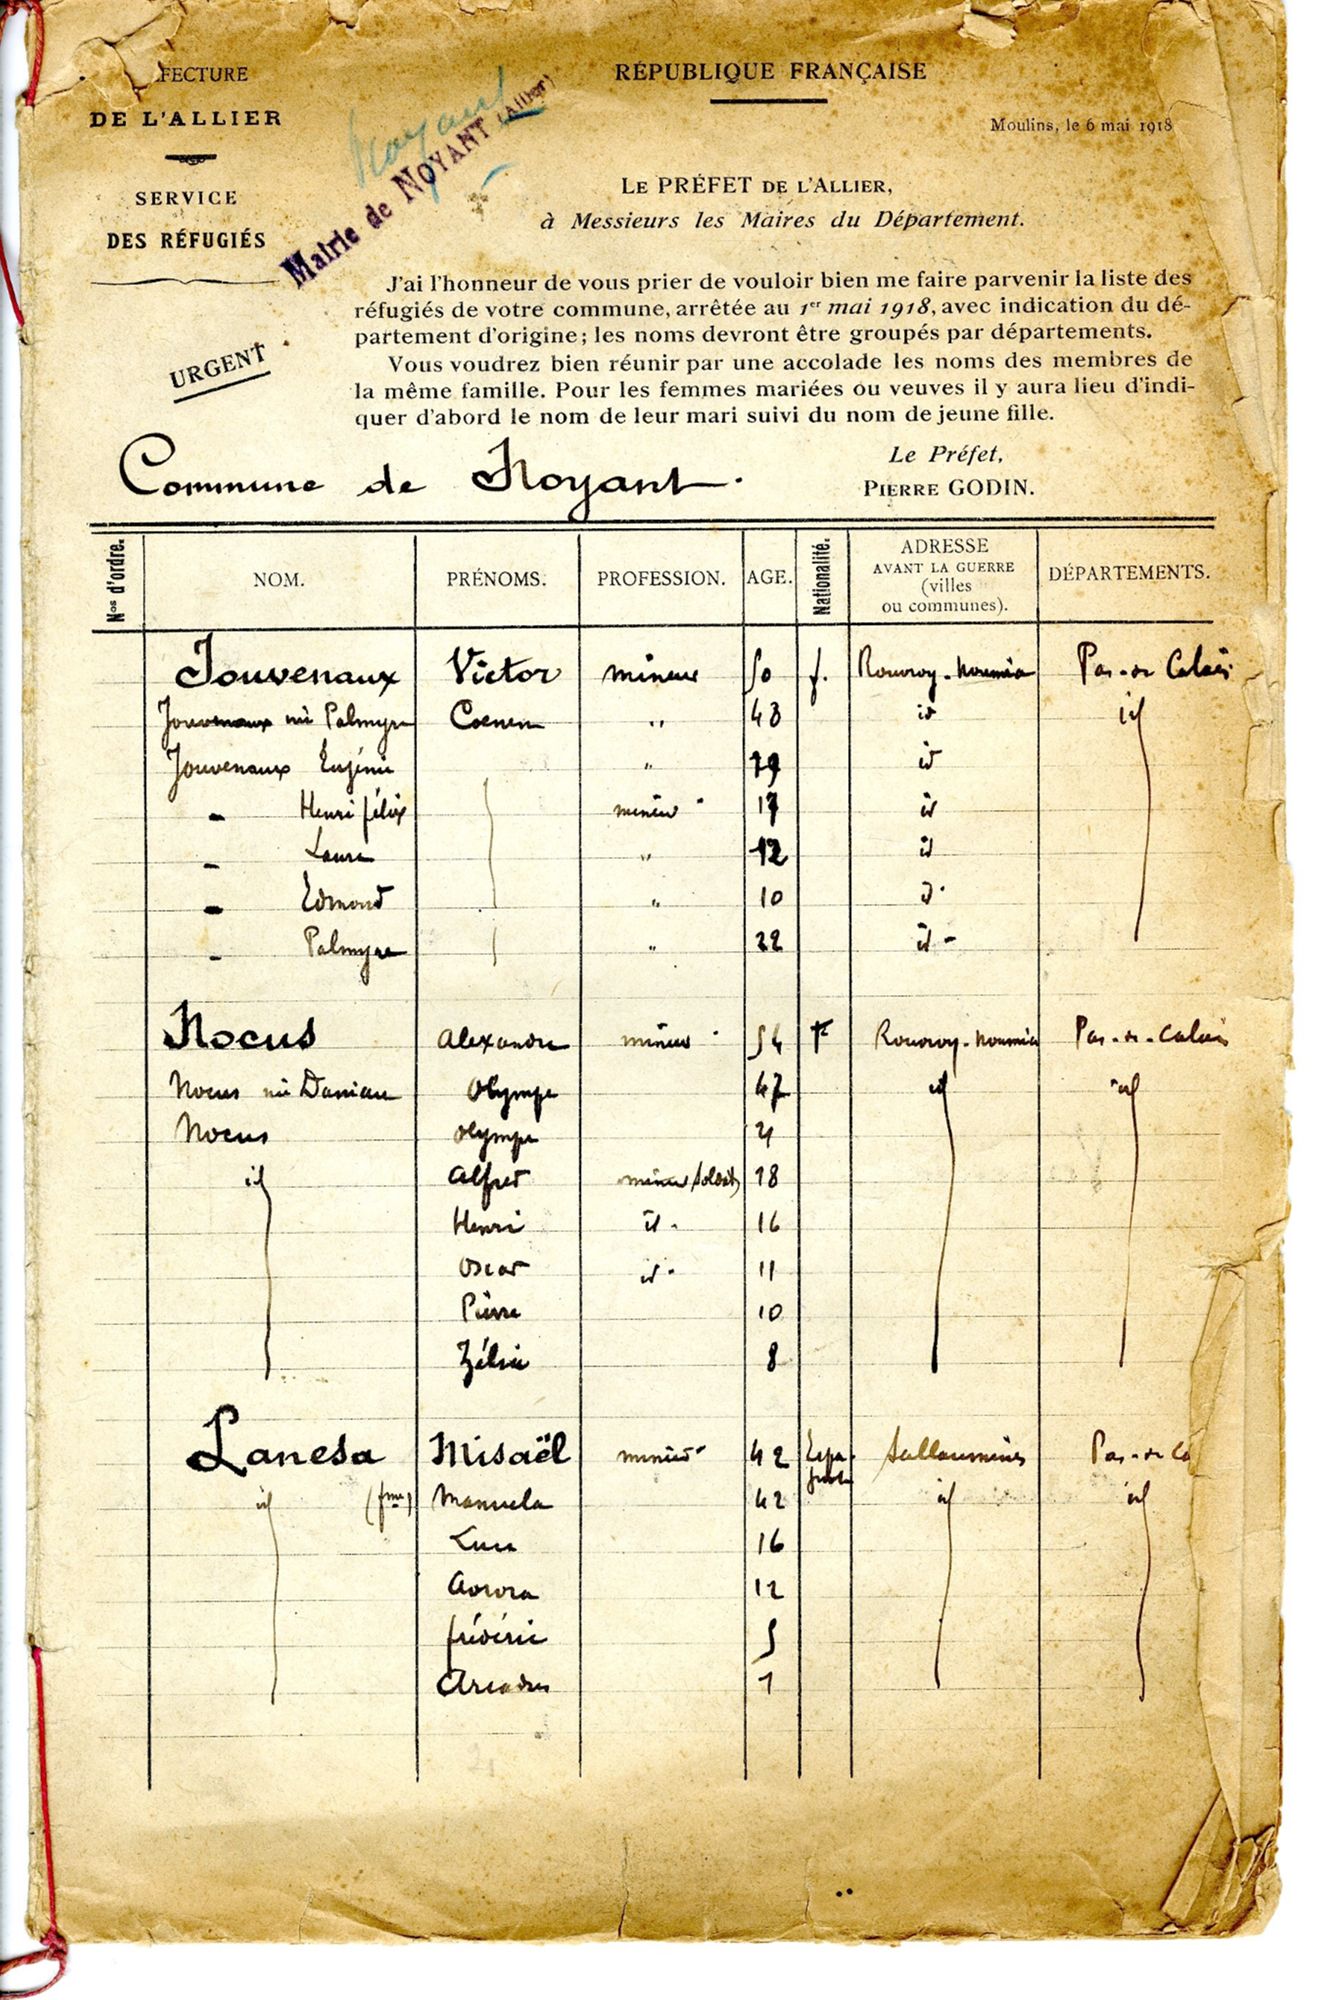 FECTURE
DE L'ALLIER
SERVICE
DES RÉFUGIÉS
URGENT
Noyant
Mairie de NOYANT (Allier)
RÉPUBLIQUE FRANÇAISE
Moulins, le 6 mai 1918
LE PRÉFET DE L'ALLIER,
à Messieurs les Maires du Département.
J'ai l'honneur de vous prier de vouloir bien me faire parvenir la liste des
réfugiés de votre commune, arrêtée au 1er mai 1918, avec indication du dé-
partement d'origine; les noms devront être groupés par départements.
Vous voudrez bien réunir par une accolade les noms des membres de
la même famille. Pour les femmes mariées ou veuves il y aura lieu d'indi-
quer d'abord le nom de leur mari suivi du nom de jeune fille.
Le Préfet,
PIERRE GODIN.
Commune de Noyant.
Nos d'ordre. NOM. PRÉNOMS. PROFESSION. AGE. Nationalité. ADRESSE AVANT LA GUERRE (villes ou communes). DÉPARTEMENTS.
Jouvenaux Victor mineur 50 f. Rouvroy-Noumea Pas-de Calais
Jouvenaux née Palmyre Coenen " 43 id id
Jouvenaux Eugénie " id
- Henri félix mineur 17 id
- Laure " 12 id
- Edmond " 10 id
- Palmyre " 22 id -
Nocus Alexandre mineur 54 f Rouvroy-Noumea Pas-de-Calais
Nocus née Daniau Olympe 47 id id
Nocus Olympe 21
id Alfred mineur soldat 18
Henri id 16
Oscar id 11
Pierre 10
Zélie 8
Lanesa Misaël mineur 42 Espagnole Sallaumines Pas-de Ca
id (fme) Manuela 42 id id
Luce 16
Aurora 12
frédéric 5
1